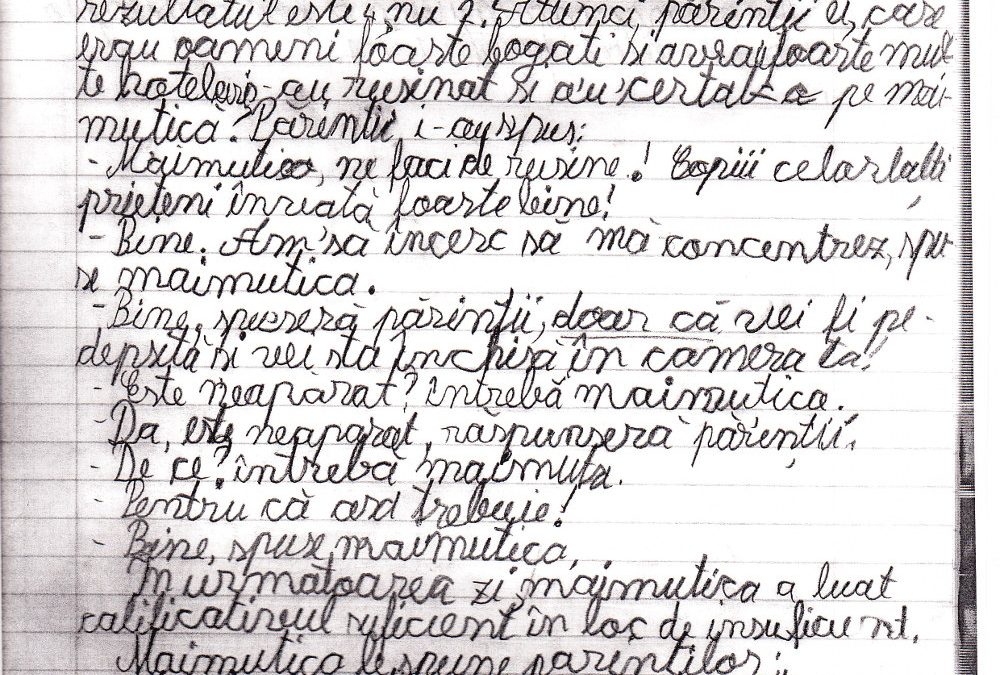 rezultatul este „nu”. Atunci, părinții ei, care
erau oameni foarte bogati si aveau foarte mul-
te hoteluri, au rusinat si au certat-o pe mai-
mutică. Părintii i-au spus:
- Maimutico, ne faci de rusine! Copiii celorlalti
prieteni învată foarte bine!
- Bine. Am să încerc să mă concentrez, spu-
se maimutica.
- Bine, spuseră părinții, doar că vei fi pe-
depsită si vei sta închisă în camera ta!
- Este neapărat? întrebă maimutica.
- Da, este neaparat, răspunseră părinții.
- De ce? întrebă maimuta.
- Pentru că asa trebuie!
- Bine, spuse maimutica.
În urmatoarea zi, maimutica a luat
calificativul suficient în loc de insuficient.
Maimutica le spune parentilor: